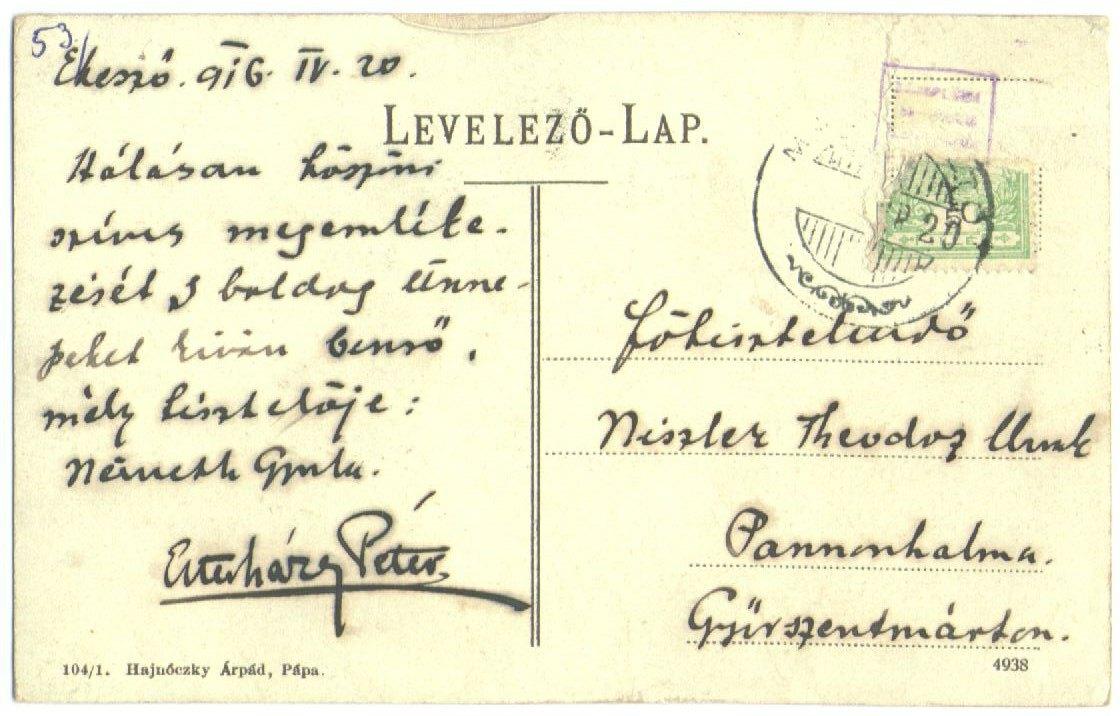 53
916. IV. 20.
LEVELEZŐ-LAP.
Hálásan köszöni
szíves megemléke-
zését s boldog Ünne-
peket kiván benső,
mély tisztelője:
Németh Gyula.
Eszterházy Péter
Főtisztelendő
Niszler Theodoz Urnak
Pannonhalma.
Győrszentmárton.
104/1. Hajnóczky Árpád, Pápa.
4938